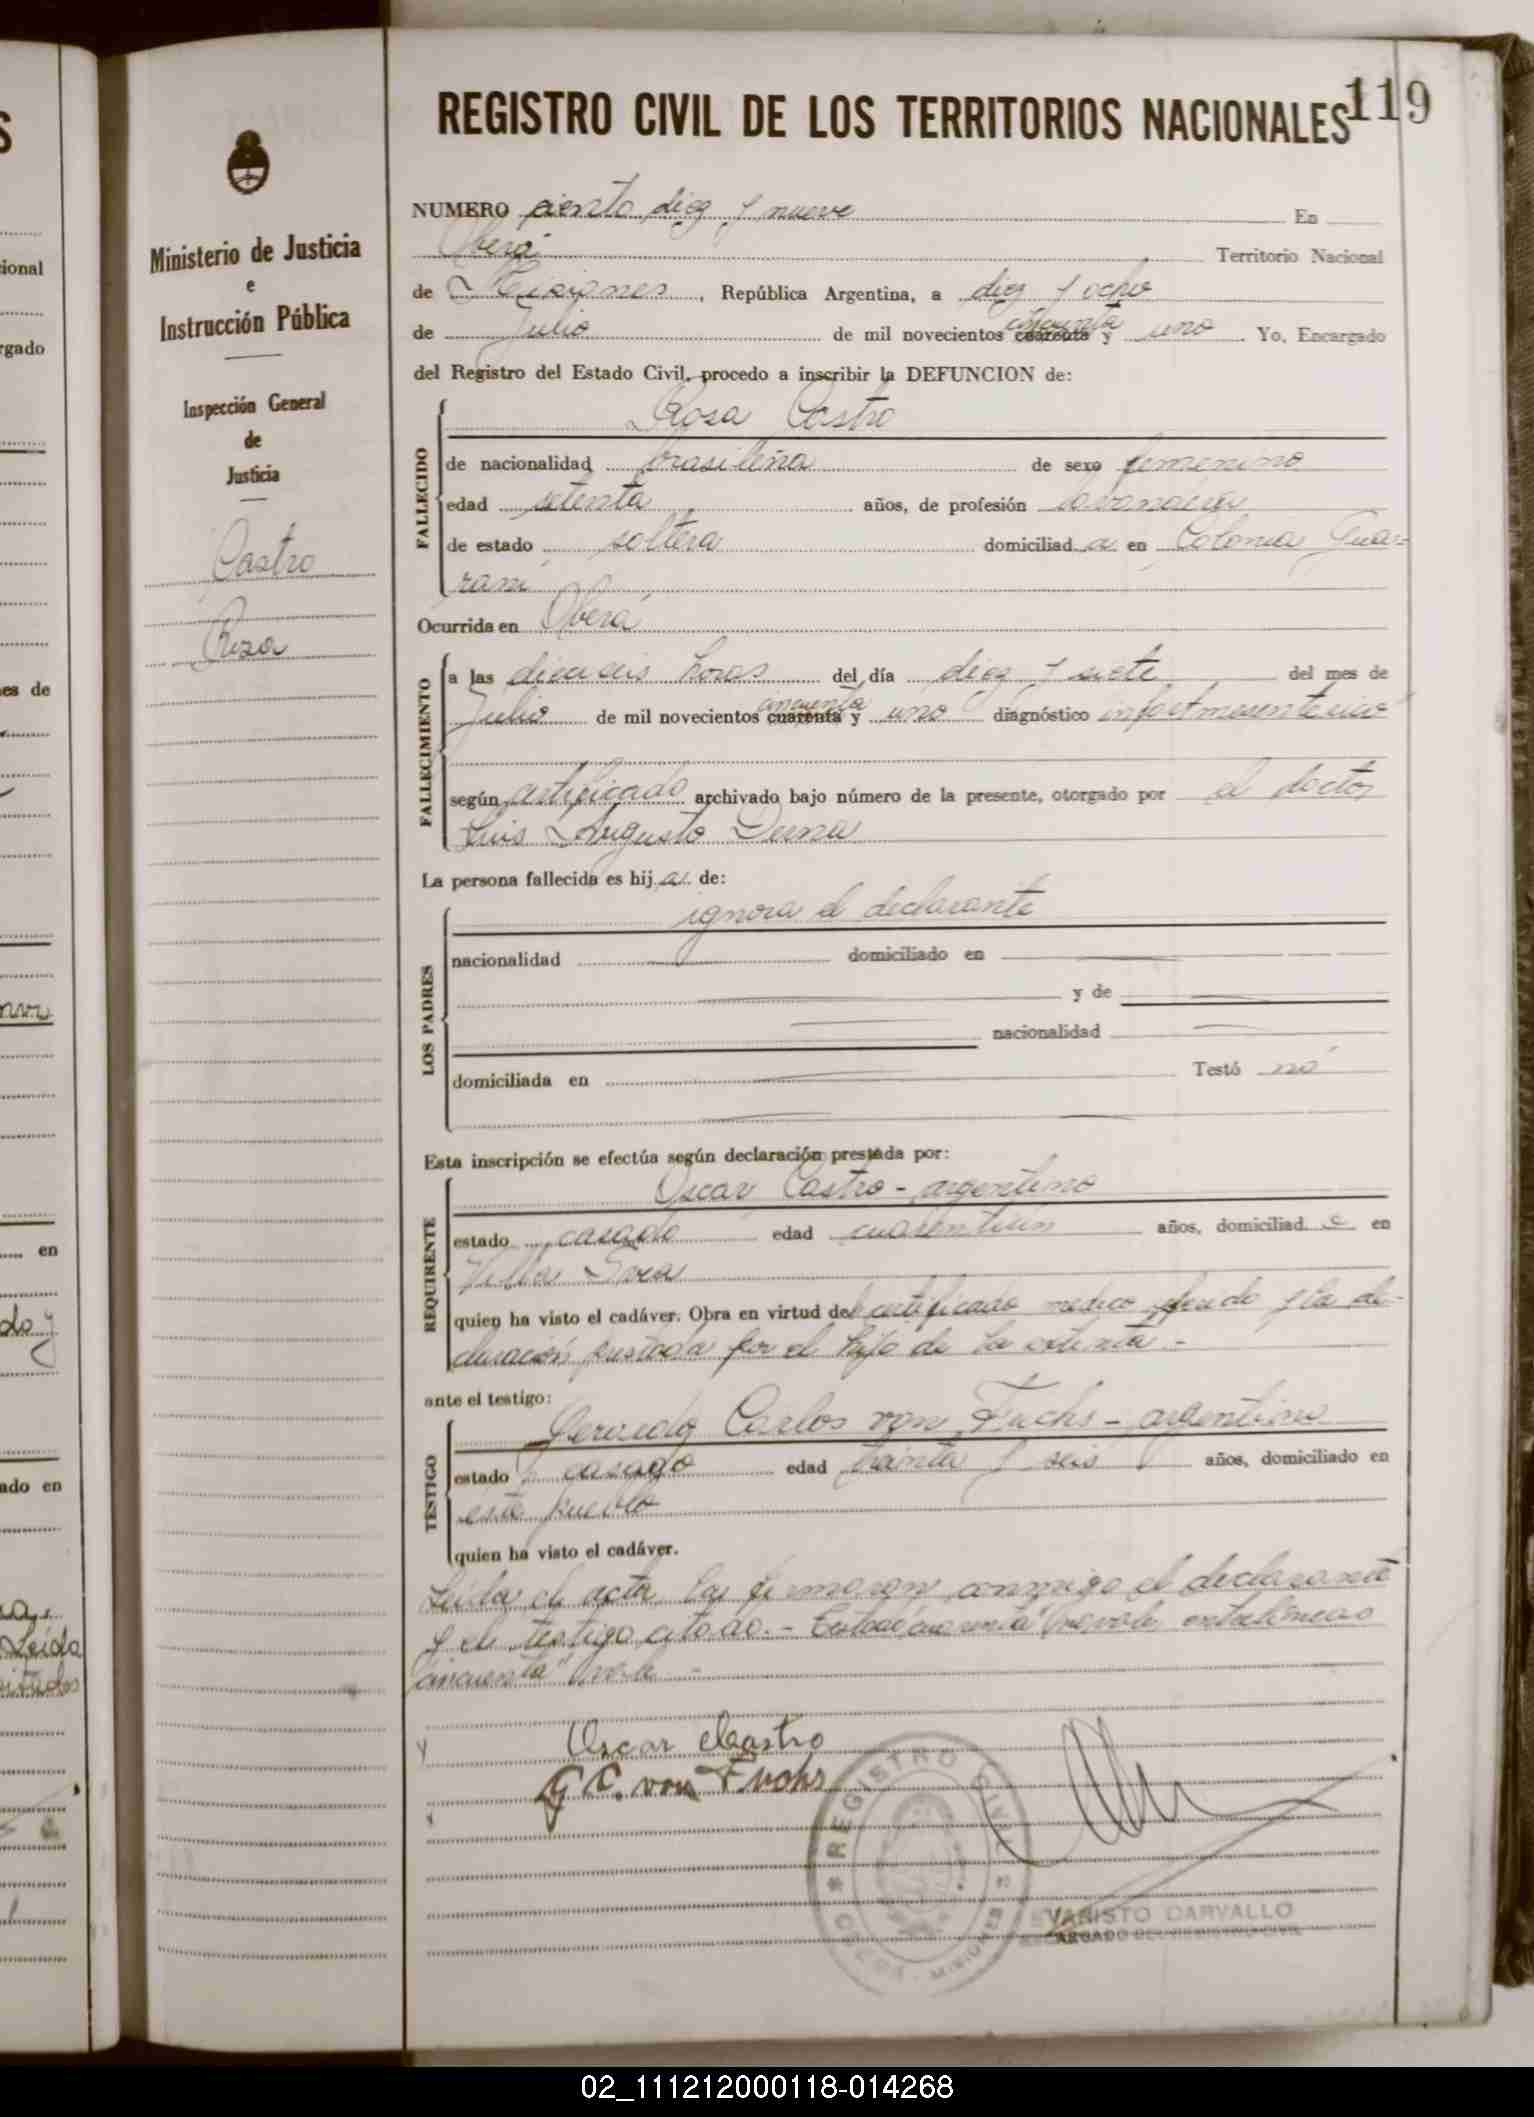 REGISTRO CIVIL DE LOS TERRITORIOS NACIONALES 119
Ministerio de Justicia
e
Instrucción Pública
Inspección General
de
Justicia
Castro
Rosa
NUMERO ciento diez y nueve En
Oberá Territorio Nacional
de Misiones, República Argentina, a diez y ocho
de Julio de mil novecientos cuarenta cincuenta y uno. Yo, Encargado
del Registro del Estado Civil, procedo a inscribir la DEFUNCION de:
FALLECIDO
Rosa Castro
de nacionalidad brasileña de sexo femenino
edad setenta años, de profesión lavandera
de estado soltera domiciliada en Colonia Gua-
raní
Ocurrida en Oberá
FALLECIMIENTO
a las dieciseis horas del día diez y siete del mes de
Julio de mil novecientos cuarenta cincuenta y uno diagnóstico infart mesenterico
según certificado archivado bajo número de la presente, otorgado por el doctor
Luis Augusto
La persona fallecida es hija de:
LOS PADRES
ignora el declarante
nacionalidad domiciliado en
y de
nacionalidad
domiciliada en Testó nó
Esta inscripción se efectúa según declaración prestada por:
REQUIRENTE
Oscar Castro - argentino
estado casado edad cuarentiún años, domiciliado en
Villa
quien ha visto el cadáver. Obra en virtud del certificado medico y la de-
claración prestada por el hijo de la extinta.-
ante el testigo:
TESTIGO
Gerardo Carlos von Fuchs - argentino
estado casado edad treinta y seis años, domiciliado en
este pueblo
quien ha visto el cadáver.
Leída el acta la firmaron conmigo el declarante
y el testigo citado.- Testado "cuarenta" no vale, entrelíneas
"cincuenta" vale -
Oscar Castro
G C. von Fuchs
REGISTRO CIVIL
MISIONES
EVARISTO CARVALLO
ENCARGADO DEL REGISTRO CIVIL
ional
rgado
es de
en
ado en
Leída
02_111212000118-014268